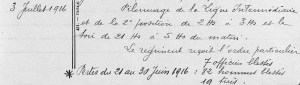 3 Juillet 1916 Pilonnage de la Ligne Intermédiaire
et de la 2e position de 2 Hs à 3 Hs et la
soir de 21 H à 5 Hs du matin.
Le régiment reçoit l'ordre particulier
7 officiers blessés
Pertes du 21 au 30 Juin 1916 : 82 hommes blessés
19 tués.